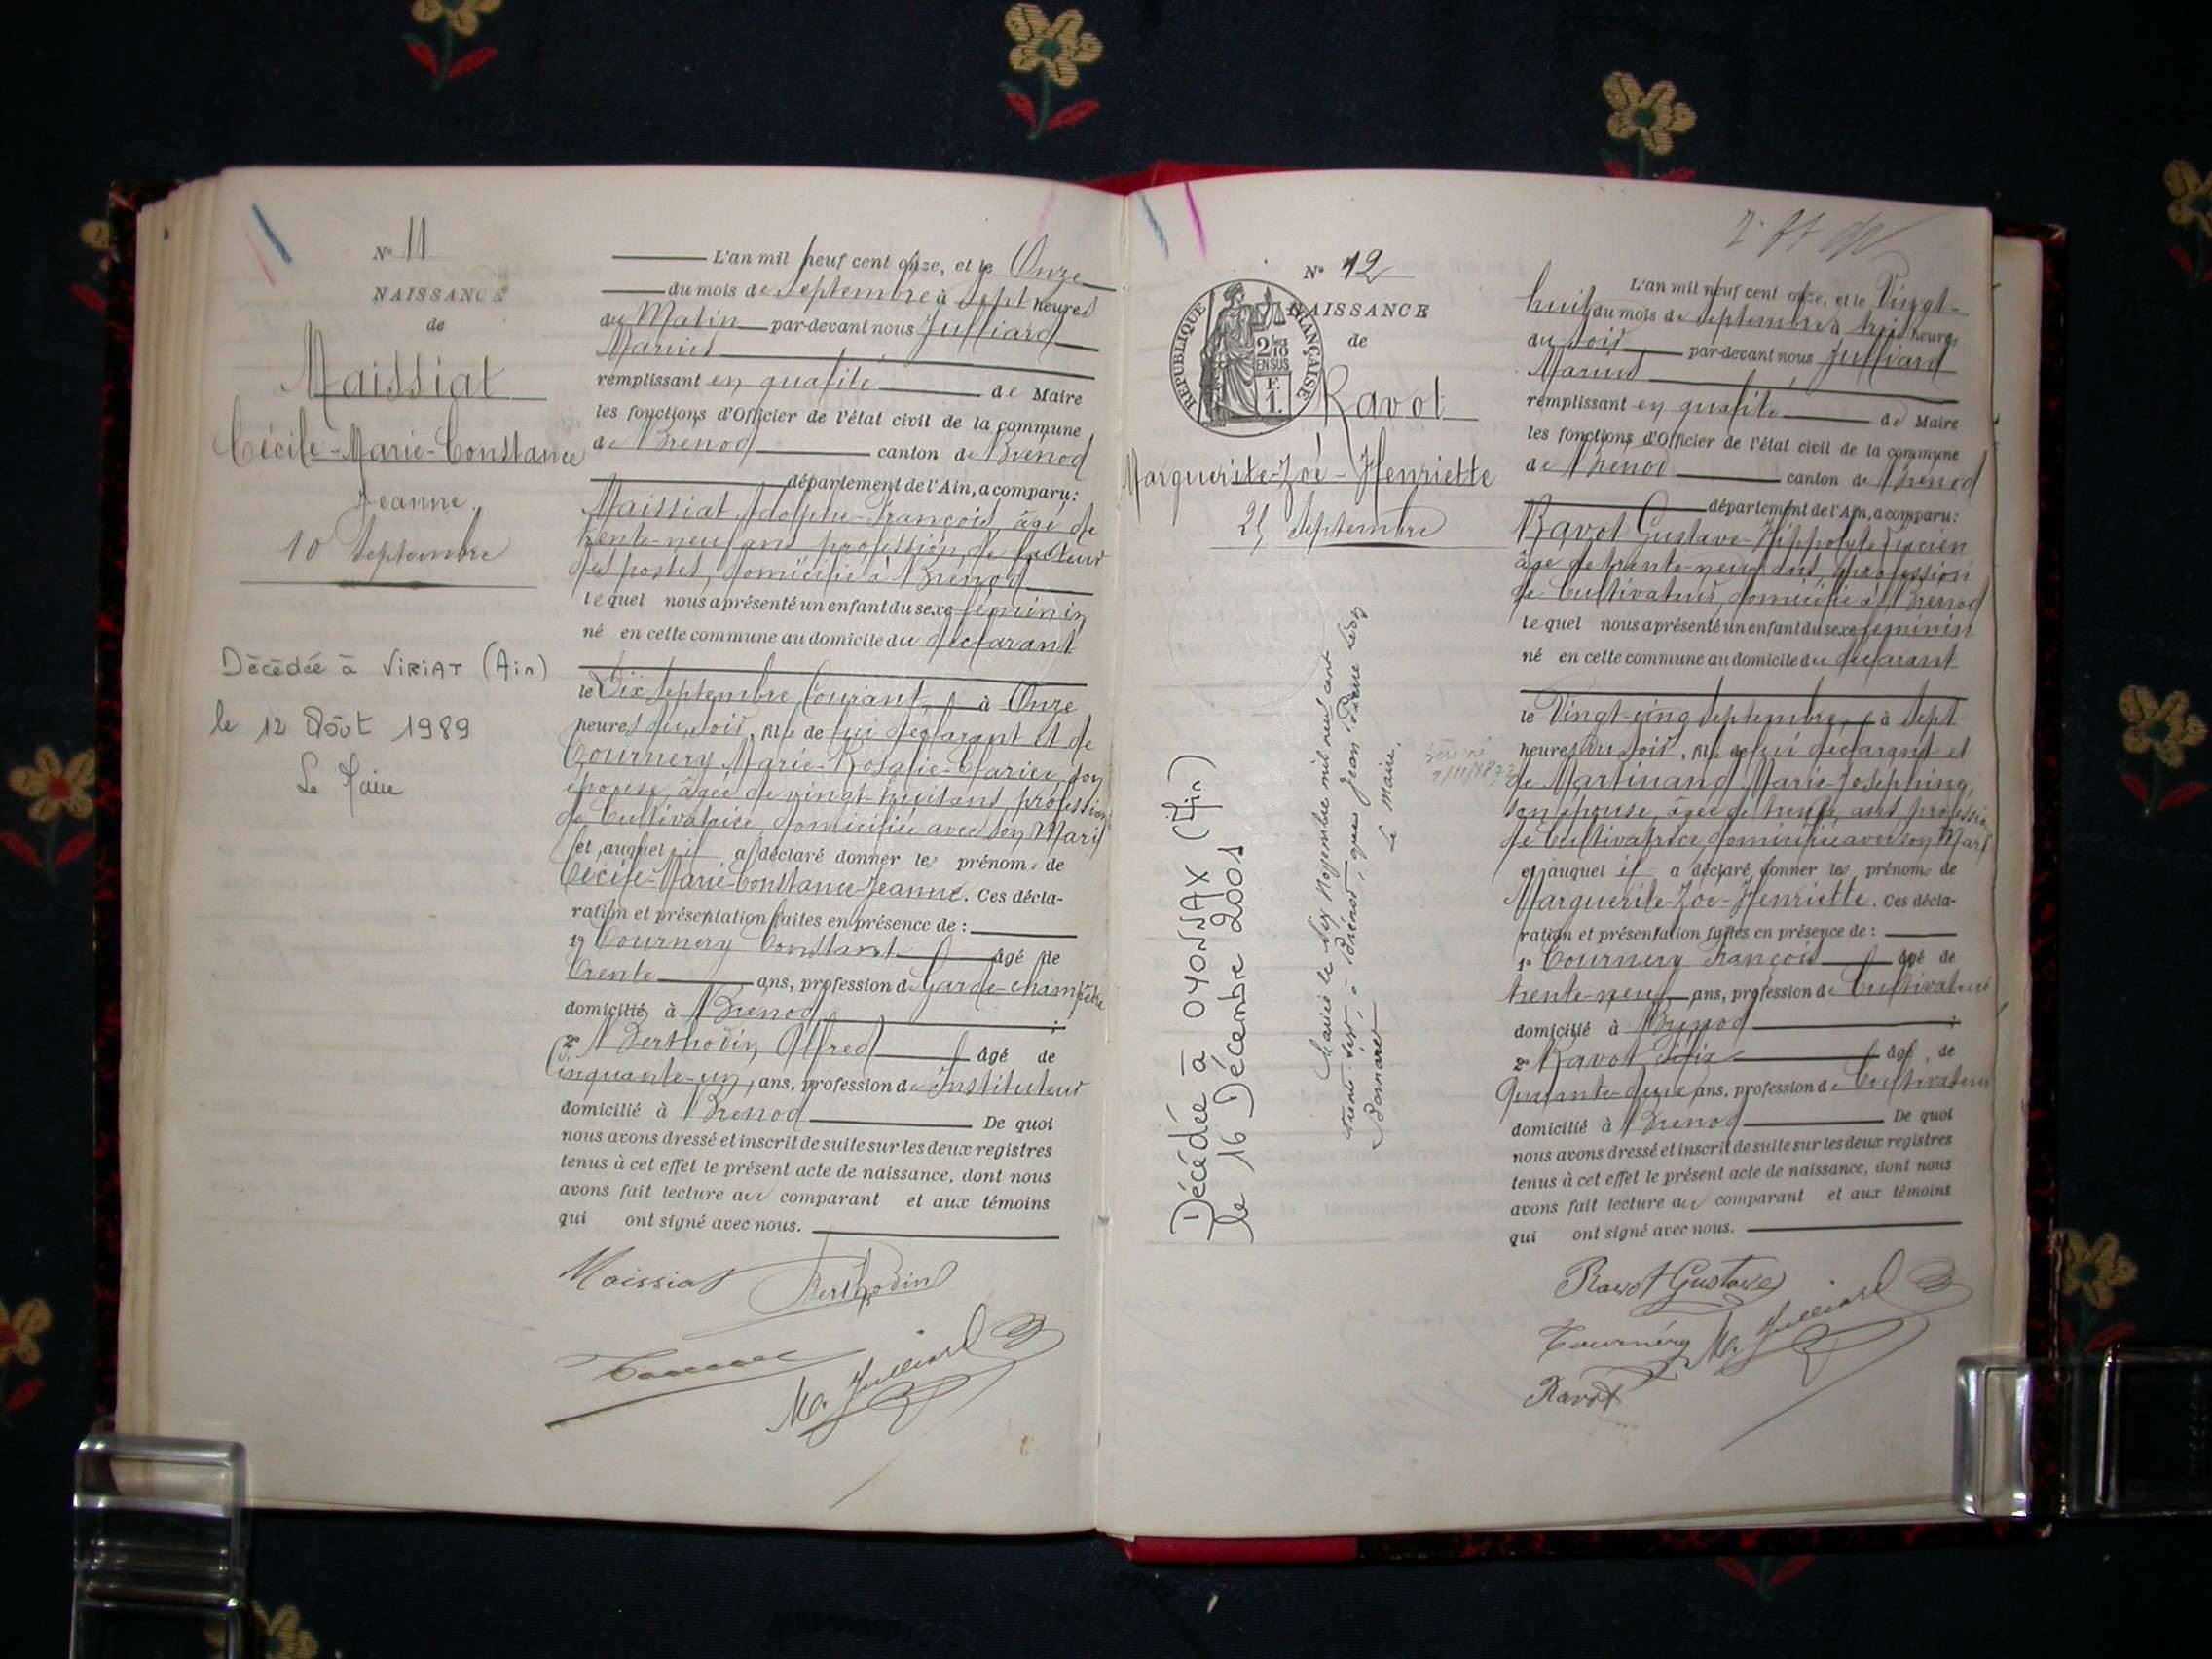 N° 11
NAISSANCE
de
Maissiat
Cécile-Marie-Constance
Jeanne.
10 Septembre
Décédée à VIRIAT (Ain)
le 12 Août 1989
Le Maire
L'an mil neuf cent onze, et le Onze
du mois de Septembre à Sept heures
du Matin par-devant nous Julliard
Marius
remplissant en qualité de Maire
les fonctions d'Officier de l'état civil de la commune
de Brénod canton de Brénod
département de l'Ain, a comparu:
Maissiat Adolphe-François, âgé de
trente-neuf ans profession de facteur
des postes, domicilié à Brénod
lequel nous a présenté un enfant du sexe féminin
né en cette commune au domicile du déclarant
le Dix Septembre Courant, à Onze
heures du soir, fille de lui déclarant et de
Tournery Marie-Rosalie-Clarice son
épouse, âgée de vingt-huit ans, profession
de Cultivatrice, domiciliée avec son Mari
et auquel il a déclaré donner les prénoms de
Cécile-Marie-Constance-Jeanne. Ces décla-
ration et présentation faites en présence de :
1° Tournery Constant âgé de
trente ans, profession de Garde-champêtre
domicilié à Brénod ;
2° Berthodin Alfred âgé de
Cinquante-un, ans, profession de Instituteur
domicilié à Brénod De quoi
nous avons dressé et inscrit de suite sur les deux registres
tenus à cet effet le présent acte de naissance, dont nous
avons fait lecture au comparant et aux témoins
qui ont signé avec nous.
Maissiat Berthodin
M. Julliard
N° 12
RÉPUBLIQUE FRANÇAISE
2/10
EN SUS
F.
1.
NAISSANCE
de
Ravot
Marguerite-Zoé-Henriette
25 Septembre
Décédée à OYONNAX (Ain)
le 16 Décembre 2001
Mariée le six Novembre mil neuf cent
trente-sept à Brénod, avec Jean Pierre Léon
Le Maire.
L'an mil neuf cent onze, et le Vingt-
huit du mois de Septembre à trois heures
du soir par-devant nous Julliard
Marius
remplissant en qualité de Maire
les fonctions d'Officier de l'état civil de la commune
de Brénod canton de Brénod
département de l'Ain, a comparu:
Ravot Gustave-Hippolyte-Lucien
âgé de trente-neuf ans, profession
de Cultivateur, domicilié à Brénod
lequel nous a présenté un enfant du sexe féminin
né en cette commune au domicile du déclarant
le Vingt-cinq Septembre, à Sept
heures du Soir, fille de lui déclarant et
de Martinand Marie-Joséphine,
son épouse, âgée de trente ans profession
de Cultivatrice, domiciliée avec son Mari
et auquel il a déclaré donner les prénoms de
Marguerite-Zoé-Henriette. Ces décla-
ration et présentation faites en présence de :
1° Tournery François âgé de
trente-neuf ans, profession de Cultivateur
domicilié à Brénod ;
2° Ravot Félix âgé de
Quarante-deux ans, profession de Cultivateur
domicilié à Brénod De quoi
nous avons dressé et inscrit de suite sur les deux registres
tenus à cet effet le présent acte de naissance, dont nous
avons fait lecture au comparant et aux témoins
qui ont signé avec nous.
Ravot Gustave
Tournéry M. Julliard
Ravot